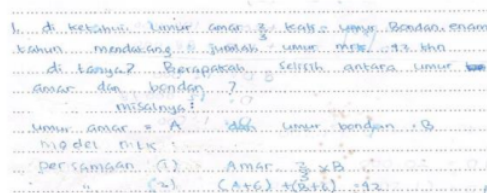 1. di ketahui umur amar 2/3 kali umur Bondan. enam
tahun mendatang jumlah umur mrk. 42 thn
di tanya? Berapakah selisih antara umur
amar dan bondan ?
misalnya :
umur amar = A umur bondan = B
model mtk :
persamaan (1) Amar 2/3 x B
" (2) (A+6) + (B+6) = 42